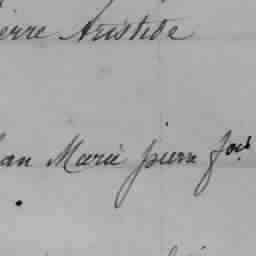 ierre Aristide
an Marie pierre fois